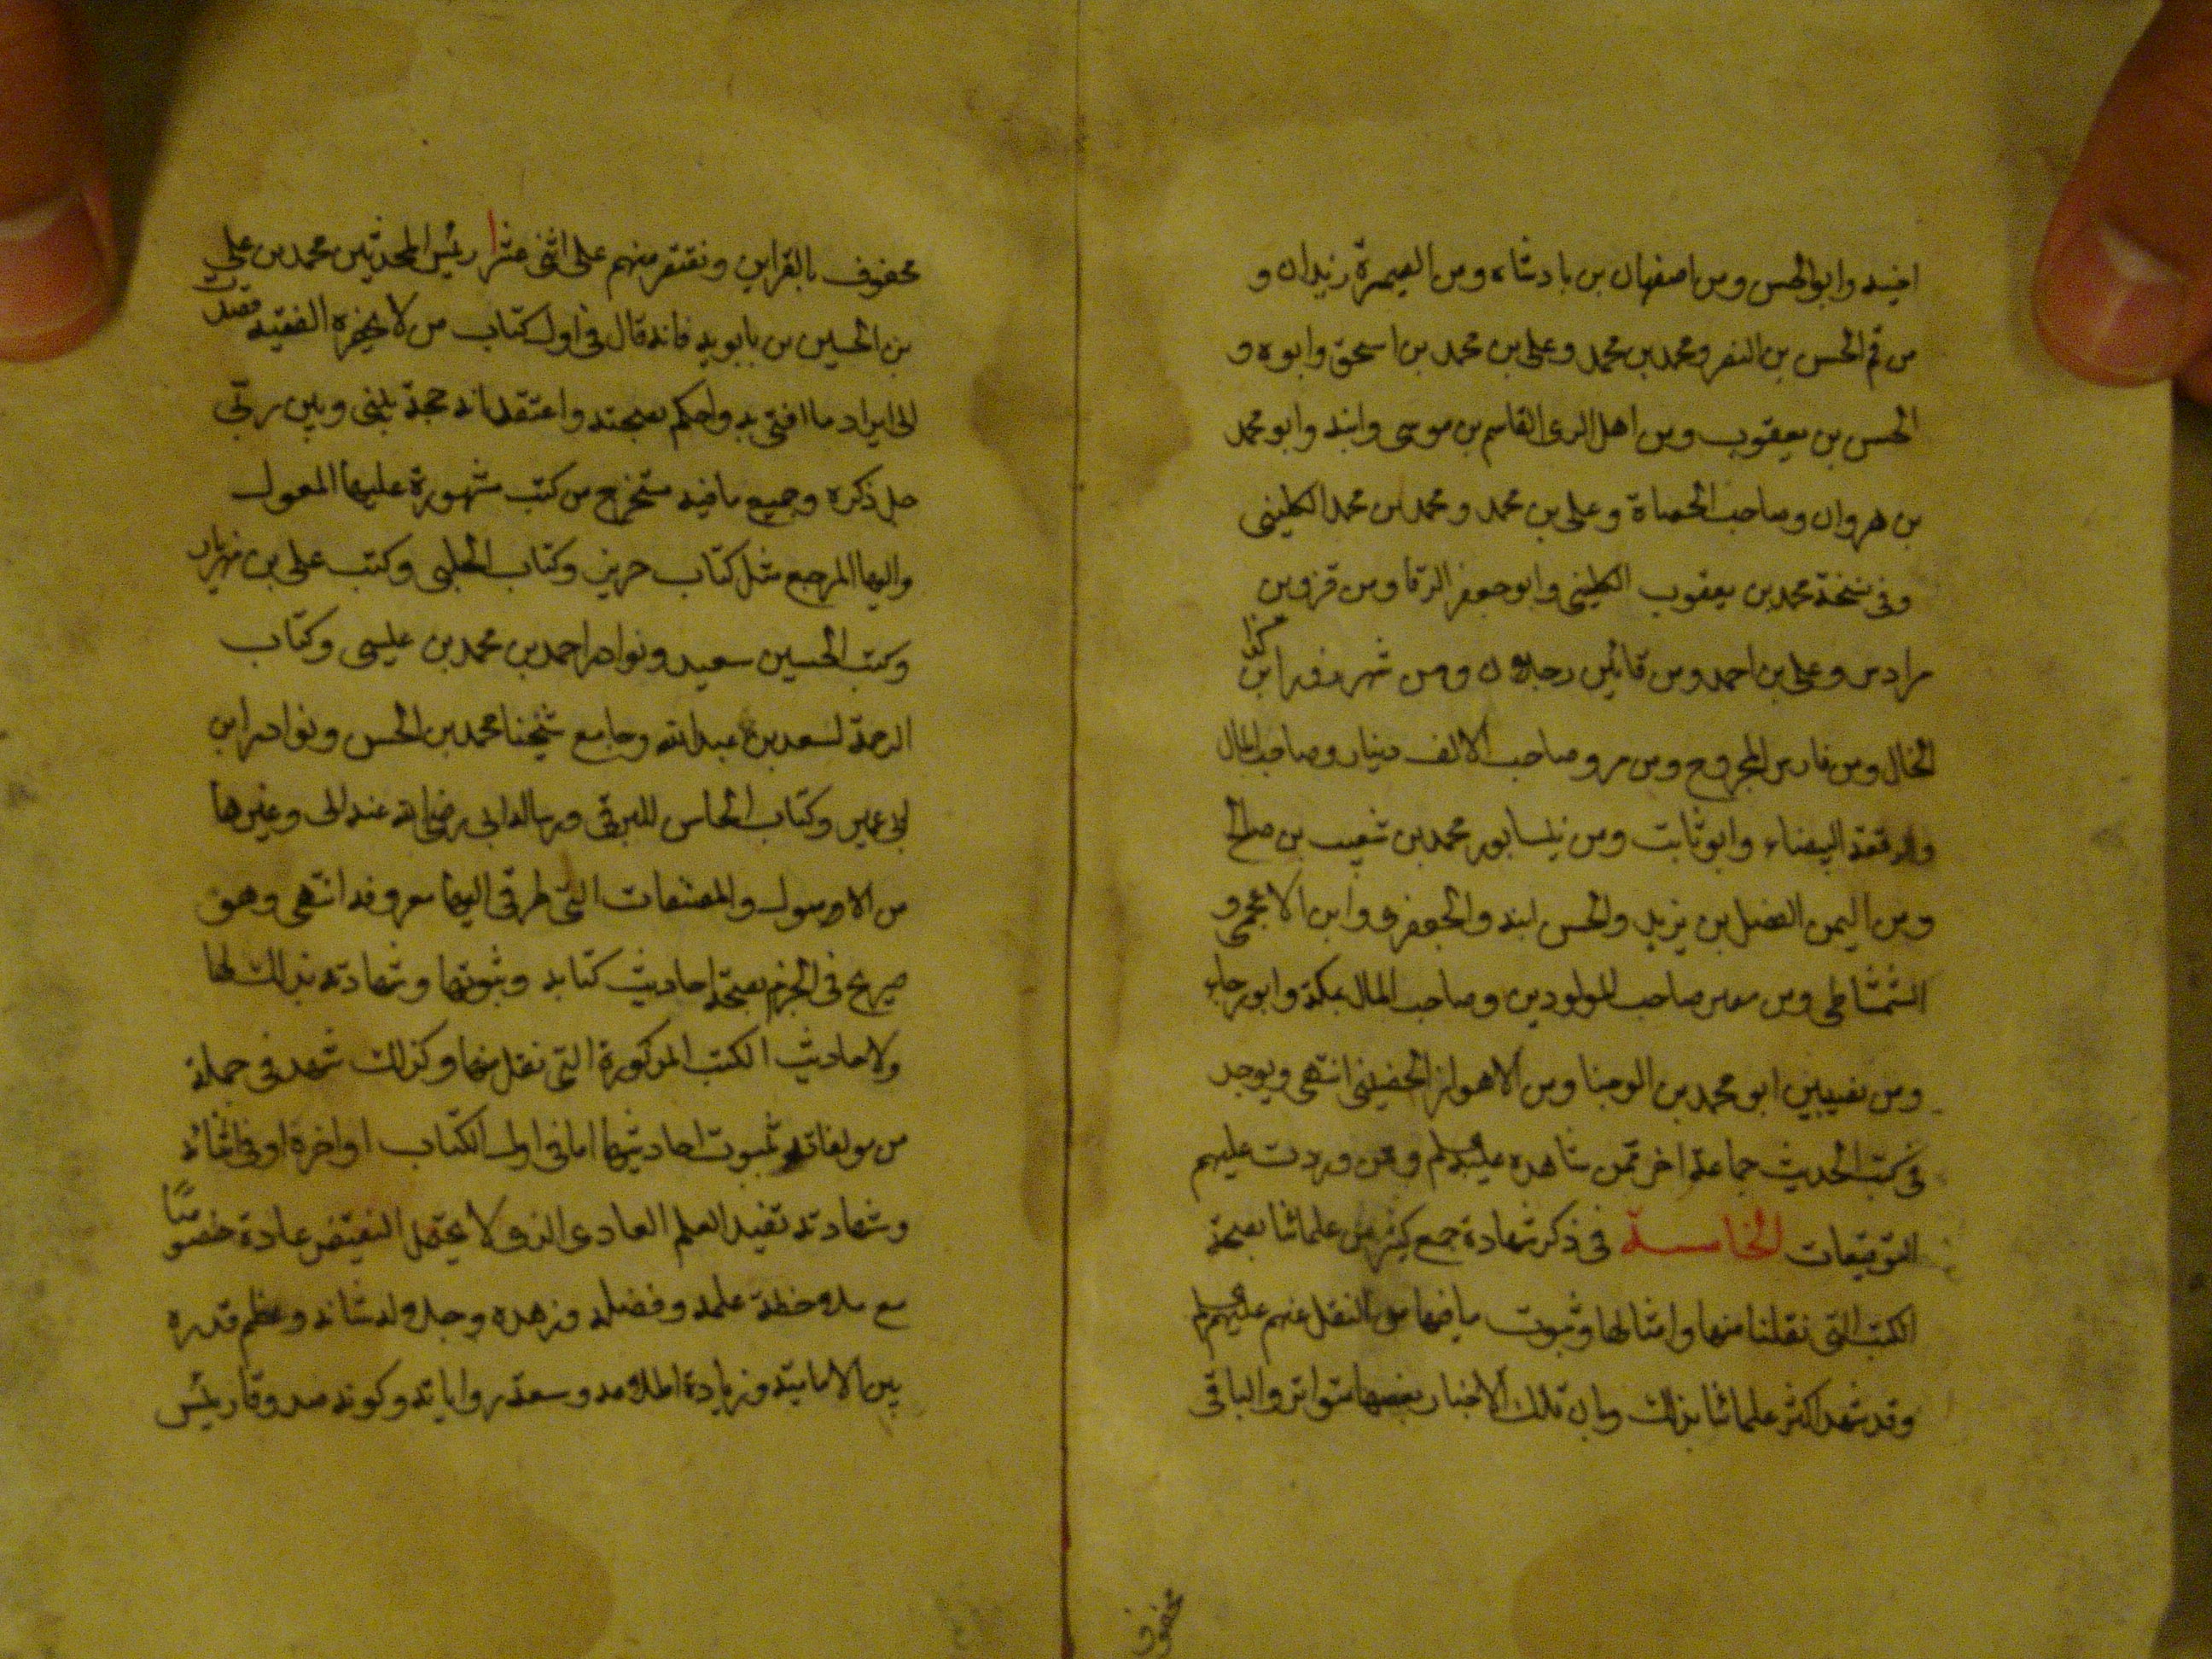 اخيه وابو الحسن ومن اصفهان بن بادشاه ومن الصيمرة زيدان و
من قم الحسن بن النضر ومحمد بن محمد وعلى بن محمد بن اسحق وابوه و
الحسن بن يعقوب ومن اهل الرى القاسم بن موسى وابنه وابو محمد
بن هروان وصاحب الحصاة وعلى بن محمد ومحمد بن محمد الكلينى
وفى نسخة محمد بن يعقوب الكلينى وابو جعفر الرقا ومن قزوين
مرادس وعلى بن احمد ومن قائين رجلان ومن شهر زور ابن
كذا
الخال ومن فارس المجروح ومن مرو صاحب الالف دينار وصاحب المال
والرقعة البيضاء وابو ثابت ومن نيسابور محمد بن شعيب بن صالح
ومن اليمن الفضل بن يزيد والحسن ابنه والجعفرى وابن الاعجمى و
الشمشاطى ومن مصر صاحب المولودين وصاحب المال بمكة وابو رجاء
ومن نصيبين ابو محمد بن الوجنا ومن الاهواز الحضينى انتهى ويوجد
فى كتب الحديث جماعة اخر ممن شاهده عليه السلم وممن وردت عليهم
التوقيعات الخامسة فى ذكر شهادة جمع كثير من علمائنا بصحة
الكتب التى نقلنا منها وامثالها وثبوت ما فيها من النقل عنهم عليهم السلم
وقد شهد اكثر علمائنا بذلك وبان تلك الاخبار بعضها متواتر والباقى
محفوف
محفوف بالقراين ونقتصر منهم على اثنى عشر ا رئيس المحدثين محمد بن على
بن الحسين بن بابويه فانه قال فى اول كتاب من لا يحضره الفقيه قصدت
الى ايراد ما افتى به واحكم بصحته واعتقد انه حجة بينى وبين ربى
جل ذكره وجميع ما فيه مستخرج من كتب مشهورة عليها المعول
واليها المرجع مثل كتاب حريز وكتاب الحلبى وكتب على بن مهزيار
وكتب الحسين سعيد ونوادر احمد بن محمد بن عيسى وكتاب
الرحمة لسعد بن عبد الله وجامع شيخنا محمد بن الحسن ونوادر ابن
ابى عمير وكتاب المحاسن للبرقى ورسالة ابى رضى الله عنه الى وغيرها
من الاصول والمصنفات التى طرقى اليها معروفه انتهى وهو
صريح فى الجزم بصحة احاديث كتابه وثبوتها وشهادته بذلك لها
ولاحاديث الكتب المذكورة التى نقل منها وكذلك شهد فى جملة
من مولفاته بثبوت احاديثها اما فى اول الكتاب او اخره او فى اثنائه
وشهادته تفيد العلم العادى الذى لا يحتمل النقيض عادة خصوصا
مع ملاحظة علمه وفضله وزهده وجلالة شانه وعظم قدره
بين الامامية وزيادة اطلاعه وسعة رواياته وكونه صدوقا رئيس